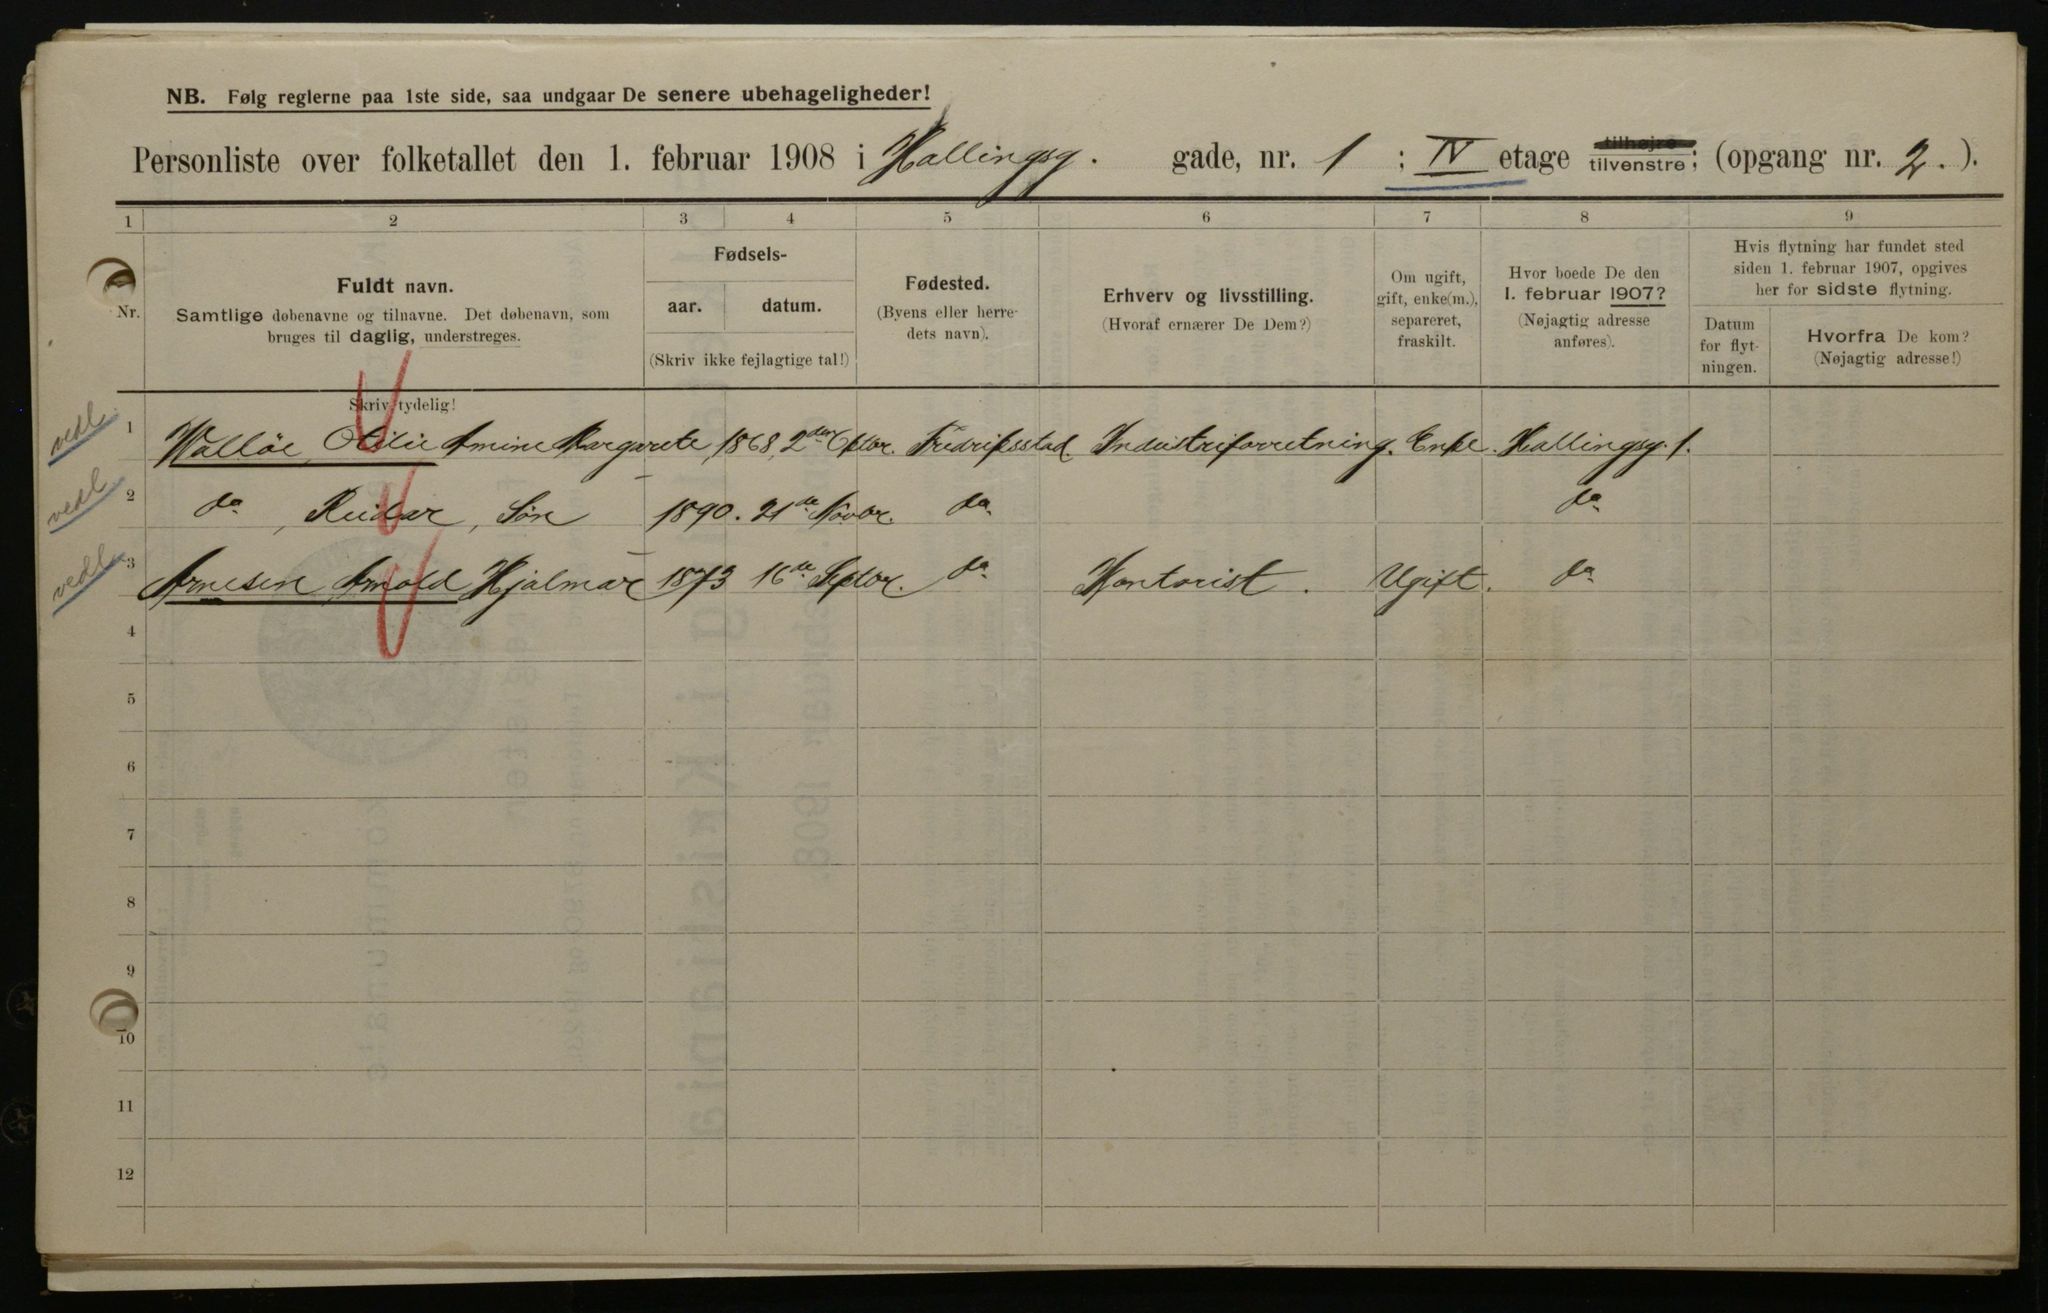 NB. Følg reglerne paa 1ste side, saa undgaar De senere ubehageligheder!
Personliste over folketallet den 1. februar 1908 i Hallingsg. gade, nr. 1 ; IV etage tilhøjre tilvenstre; (opgang nr. 2. ).
1 2 3 4 5 6 7 8 9
Nr.
Fuldt navn.
Samtlige døbenavne og tilnavne. Det døbenavn, som
bruges til daglig, understreges.
Skriv tydelig!
Fødsels-
aar. datum.
(Skriv ikke fejlagtige tal!)
Fødested.
(Byens eller herre-
dets navn).
Erhverv og livsstilling.
(Hvoraf ernærer De Dem?)
Om ugift,
gift, enke(m.),
separeret,
fraskilt.
Hvor boede De den
1. februar 1907?
(Nøjagtig adresse
anføres).
Hvis flytning har fundet sted
siden 1. februar 1907, opgives
her for sidste flytning.
Datum
for flyt-
ningen.
Hvorfra De kom?
(Nøjagtig adresse!)
vedl. 1 Walløe, Otilie Amine Margarete 1868, 2den Oktbr. Fredriksstad. Industriforretning. Enke. Hallingsg. 1.
vedl. 2 do, Reidar, Søn 1890. 21de Novbr. do. do
vedl. 3 Arnesen Arnold Hjalmar 1873 16de Septbr. do Kontorist. Ugift. do
4
5
6
7
8
9
10
11
12